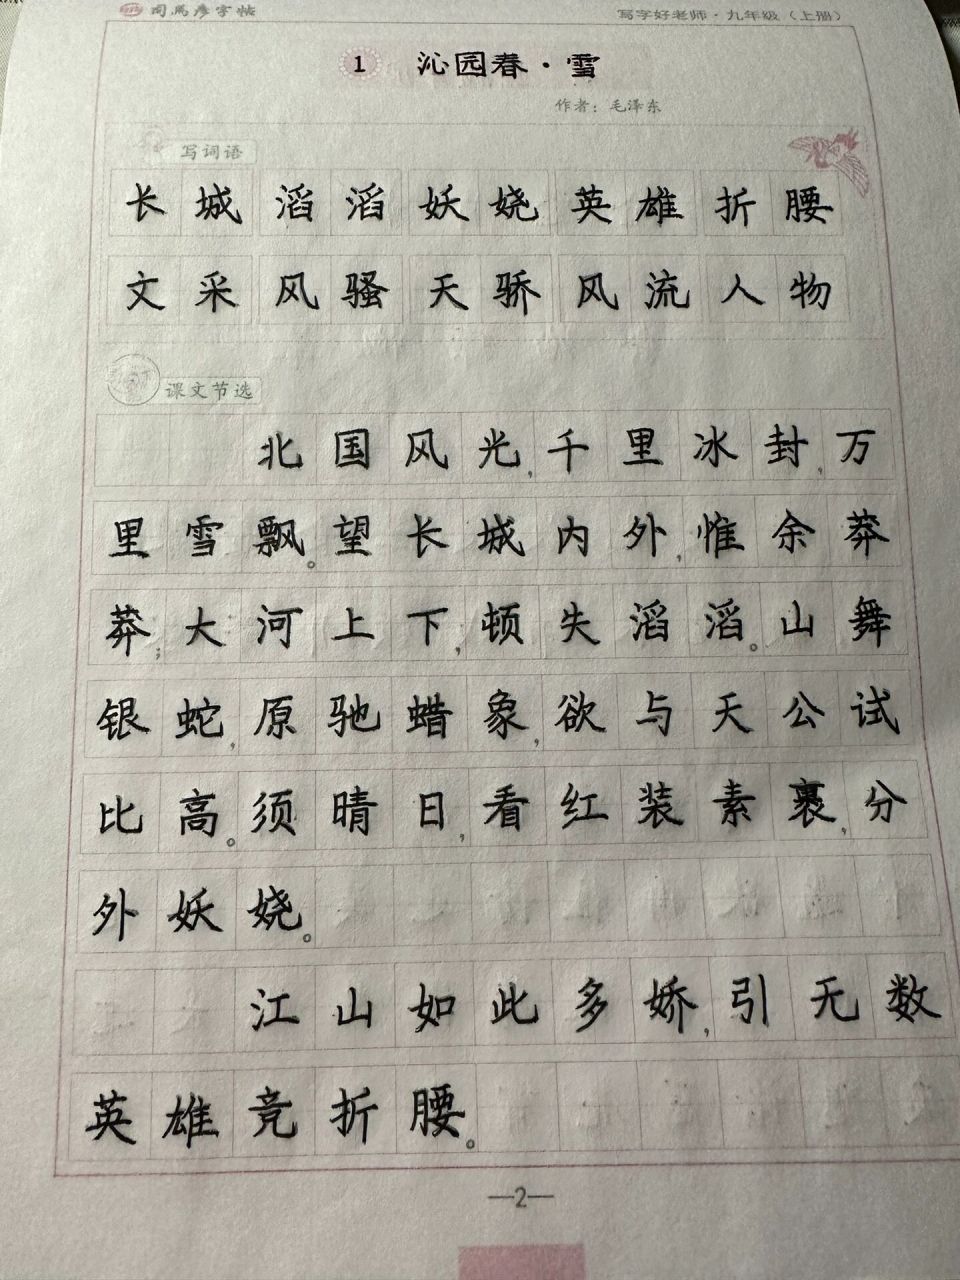 司马彦字帖 写字好老师·九年级（上册）
1 沁园春·雪
作者：毛泽东
写词语
长城 滔滔 妖娆 英雄 折腰
文采 风骚 天骄 风流 人物
课文节选
北国风光，千里冰封，万
里雪飘。望长城内外，惟余莽
莽；大河上下，顿失滔滔。山舞
银蛇，原驰蜡象，欲与天公试
比高。须晴日，看红装素裹，分
外妖娆。
江山如此多娇，引无数
英雄竞折腰。
—2—